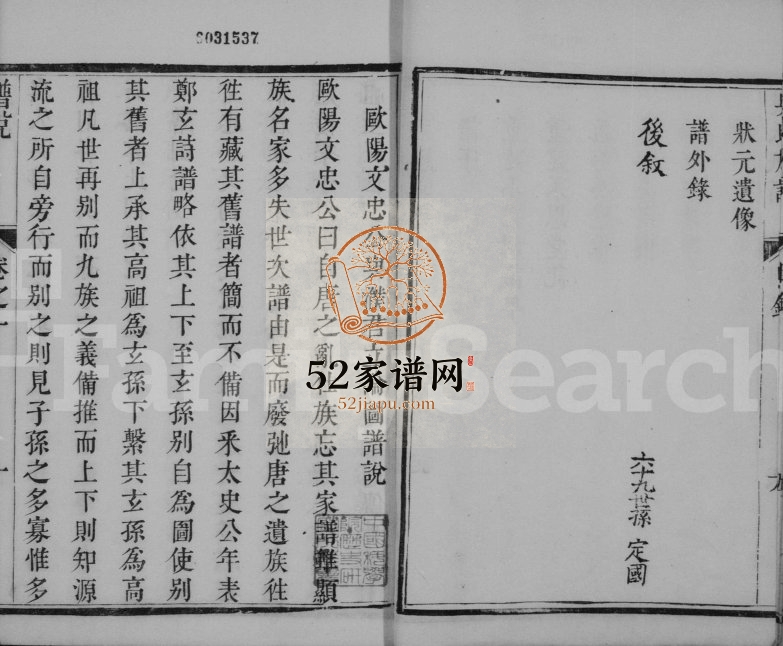 9031537
狀元遺像
譜外錄
後叙
六十九世孫 定國
歐陽文忠公 圖譜說
歐陽文忠公曰自唐之亂 族忘其家譜雖顯
族名家多失世次譜由是而廢弛唐之遺族徃
徃有藏其舊譜者簡而不備因釆太史公年表
鄭玄詩譜略依其上下至玄孫别自爲圖使别
其舊者上承其高祖爲玄孫下繫其玄孫爲高
祖凡世再别而九族之義備推而上下則知源
流之所自旁行而别之則見子孫之多寡惟多
譜說 卷之一 一
FamilySearch
52家谱网
52jiapu.com